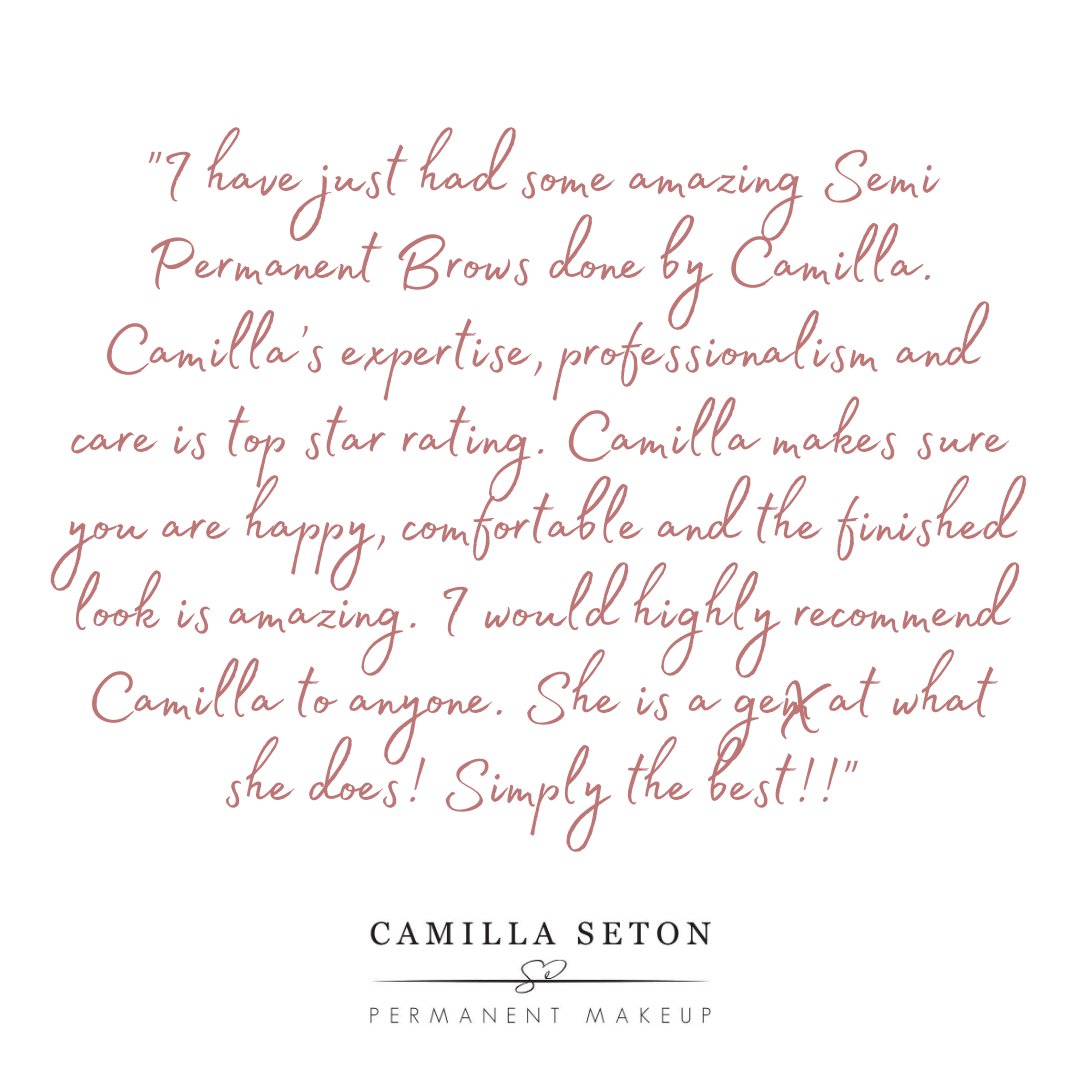 "I have just had some amazing Semi
Permanent Brows done by Camilla.
Camilla's expertise, professionalism and
care is top star rating. Camilla makes sure
you are happy, comfortable and the finished
look is amazing. I would highly recommend
Camilla to anyone. She is a gem at what
she does! Simply the best!!"
CAMILLA SETON
PERMANENT MAKEUP